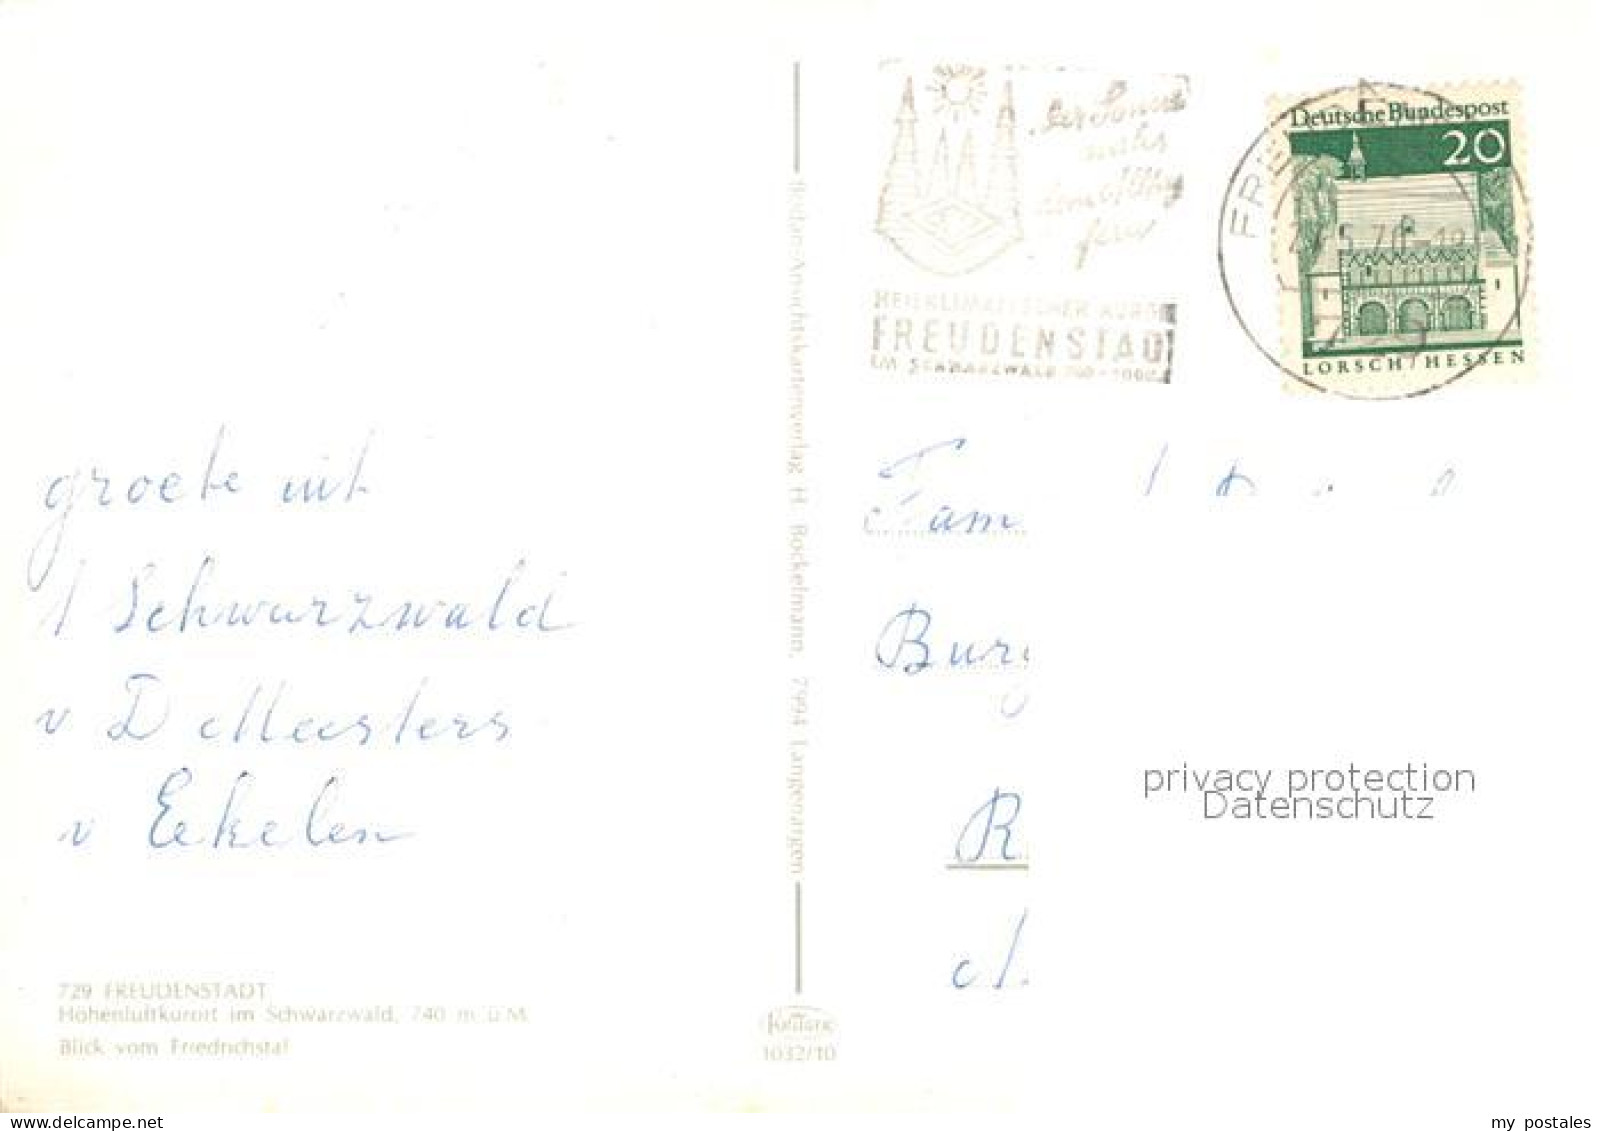 groete uit
't Schwarzwald
v D Meesters
v Eekelen
729 FREUDENSTADT
Höhenluftkurort im Schwarzwald, 740 m ü.M.
Blick vom Friedrichstal
Ansichtskartenverlag H. Bockelmann, 7994 Langenargen
1032/10
der Sonne
näher
dem Alltag
fern
HEILKLIMATISCHER KURORT
FREUDENSTAD
IM SCHWARZWALD 740 - 1000
Deutsche Bundespost
20
LORSCH/HESSEN
Fam
Burg
R
privacy protection
Datenschutz
www.delcampe.net
my_postales